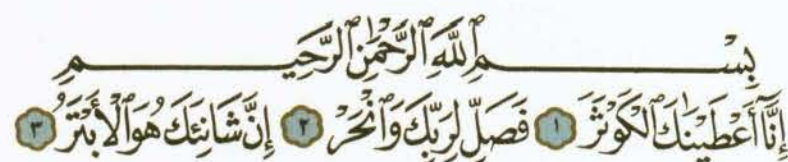 بِسْمِ ٱللَّهِ ٱلرَّحْمَٰنِ ٱلرَّحِيمِ
إِنَّآ أَعْطَيْنَٰكَ ٱلْكَوْثَرَ ١ فَصَلِّ لِرَبِّكَ وَٱنْحَرْ ٢ إِنَّ شَانِئَكَ هُوَ ٱلْأَبْتَرُ ٣